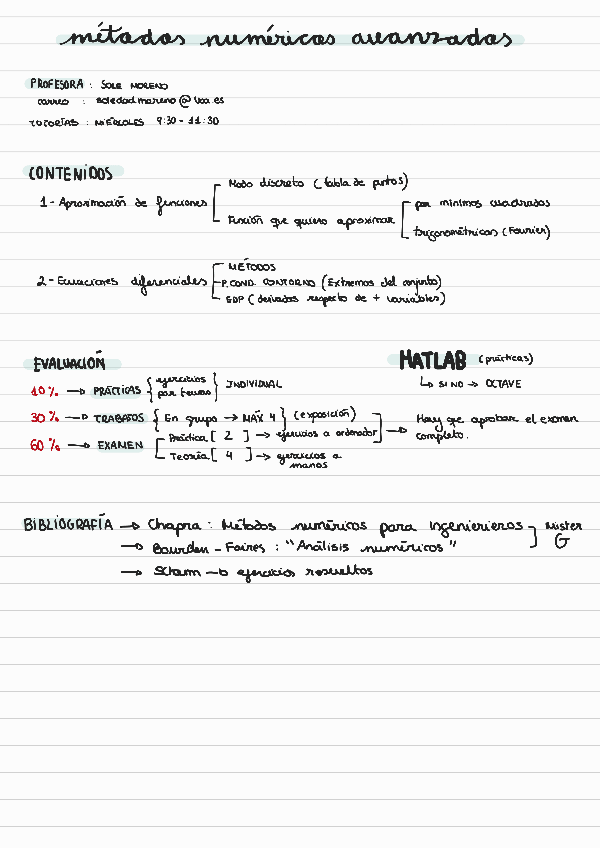 métodos numéricos avanzados
PROFESORA : SOLE MORENO
correo : soledad.moreno@uca.es
TUTORÍAS : MIÉRCOLES 9:30 - 11:30
CONTENIDOS
1 - Aproximación de funciones
Modo discreto (tabla de puntos)
Función que quiero aproximar
por mínimos cuadrados
trigonométricas (Fourier)
2 - Ecuaciones diferenciales
MÉTODOS
P. COND. CONTORNO (Extremos del conjunto)
EDP (derivadas respecto de + variables)
EVALUACIÓN
10% → PRÁCTICAS { ejercicios por temas } INDIVIDUAL
30% → TRABAJOS { En grupo → MÁX 4 } (exposición)
60% → EXAMEN
Práctica [ 2 ] → ejercicios a ordenador
Teoría [ 4 ] → ejercicios a manos
→ Hay que aprobar el examen
completo.
MATLAB (prácticas)
↳ SI NO → OCTAVE
BIBLIOGRAFÍA → Chapra : Métodos numéricos para Ingenierieros
→ Bourden - Faires : "Análisis numéricos"
Mister
G
→ Schaum → ejercicios resueltos